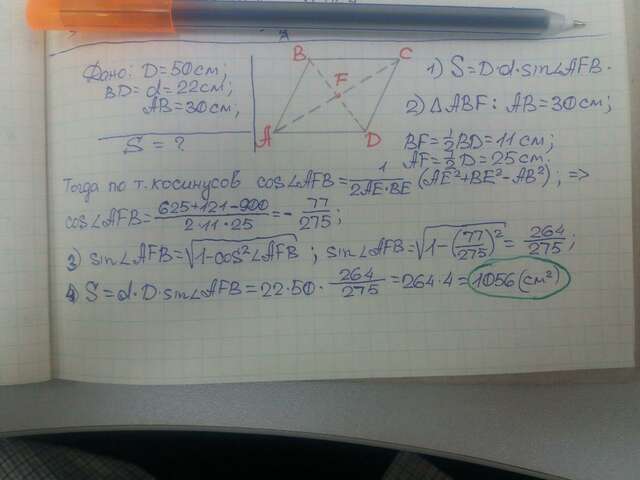 Дано: D=50см;
BD=d=22см;
AB=30см;
S=?
B C
F
A D
1) S=D·d·sin∠AFB.
2) △ABF: AB=30см;
BF=½BD=11см;
AF=½D=25см;
Тогда по т. косинусов cos∠AFB=1/(2AE·BE) (AE²+BE²-AB²); =>
cos∠AFB=(625+121-900)/(2·11·25)=-77/275;
3) sin∠AFB=√(1-cos²∠AFB); sin∠AFB=√(1-(77/275)²)=264/275;
4) S=d·D·sin∠AFB=22·50·264/275=264·4=1056(см²)